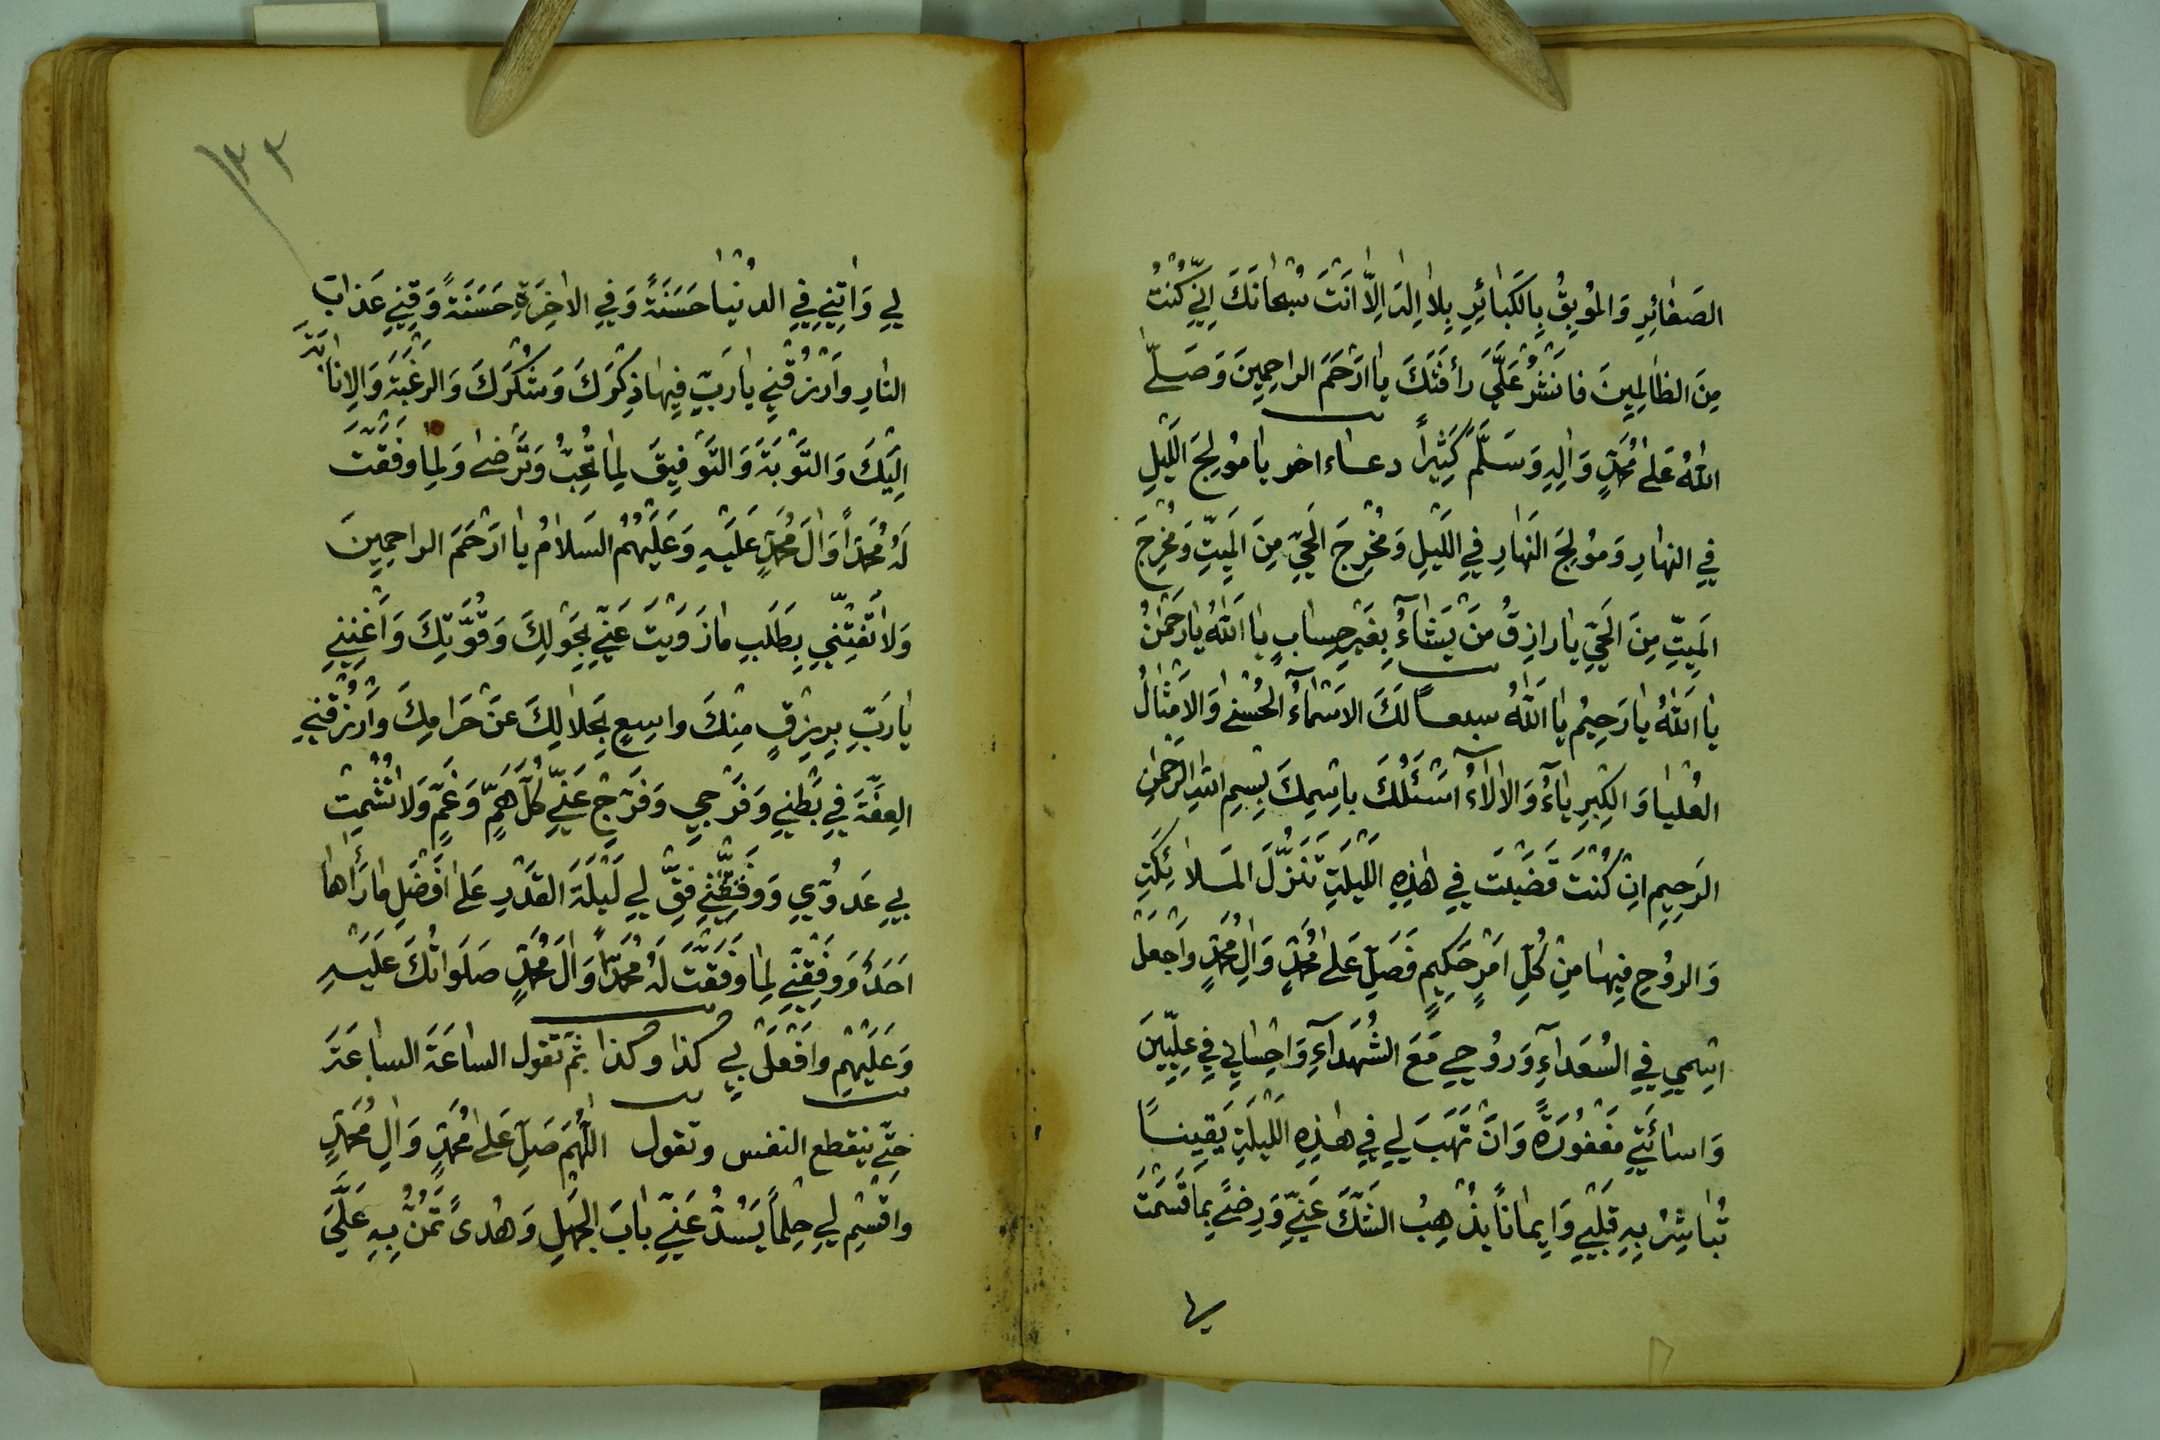 الصَغٰائِرِ وَالمُوبِقُ بِالكَبٰائِرِ بِلاٰ اِلٰهَ اِلّاٰ انَتَ سُبْحٰانَكَ اِنّي كُنْتُ
مِنَ الظٰالِمِينَ فانَشُرْ عَلَيَّ رَأفَتَكَ يٰا ارَحَمَ الراحِمِينَ وَصَلَّے
اللهُ عَلٰى مُحَمَّدٍ وَالِهِ وَسَلَّمَ كَثِيراً دعاء اخر يٰا مُولِجَ اللَّيْلِ
فِي النهٰارِ وَمُولِجَ النَهٰارِ فِي اللَيْلِ وَمُخْرِجَ الَحيِّ مِنَ المَيِّتِ وَمُخْرِجَ
المَيِّتِ مِنَ الَحيِّ يٰا رازِقُ مَنْ يَشٰآءُ بِغَيْرِ حِسٰابٍ يٰا اَللهُ يٰا رَحْمٰنُ
يٰا اَللهُ يٰا رَحِيمُ يٰا اَللهُ سبعاً لَكَ الاَسْمٰآءُ الحُسْنىٰ وَالاَمْثٰالُ
العُلْيٰا وَالكِبْرِيٰاءُ وَالاٰلاٰءُ اَسْئَلُكَ بِاسْمِكَ بِسْمِ اللهِ الرَحْمٰنِ
الرَحِيمِ اِنْ كُنْتَ قَضَيْتَ فِي هٰذِهِ اللَيْلَةِ تَنَزُّلَ المَلاٰئِكَةِ
وَالروُحِ فِيهٰا مِنْ كُلِّ اَمْرٍ حَكِيمٍ فَصَلِّ عَلٰى مُحَمَّدٍ وَاٰلِ مُحَمَّدٍ وَاجْعَلْ
اسْمِي فِي السُعَدآءِ وَروُحِي مَعَ الشُهَدآءِ وَاحْسٰانِي فِي عِلِّيّينَ
وَاسٰائَتِي مَغْفُورَةً وَانَْ تَهَبَ لِي فِي هٰذِهِ اللَيْلَةِ يَقِيناً
تُبٰاشِرُ بِهِ قَلْبِي وَاِيمٰاناً يُذْهِبُ الشَكَّ عَنّي وَرِضىً بِمٰا قَسَمْتَ
لي
١٣٢
لِي وَاٰتِنِي فِي الدُنْيٰا حَسَنَةً وَفِي الاٰخِرَةِ حَسَنَةً وَقِنِي عَذٰابَ
النٰارِ وَارْزُقْنِي يٰا رَبِّ فِيهٰا ذِكْرَكَ وَشُكْرَكَ وَالرَغْبَةَ وَالاِنٰابَةَ
اِلَيْكَ وَالتَوْبَةَ وَالتَوْفِيقَ لِمٰا تُحِبُّ وَتَرْضىٰ وَلِمٰا وَفَّقْتَ
لَهُ مُحَمَّداً وَاٰلَ مُحَمَّدٍ عَلَيْهِ وَعَلَيْهِمُ السَلاٰمُ يٰا ارَْحَمَ الراحِمِينَ
وَلاٰ تَفْتِنّي بِطَلَبِ مٰا زَوَيْتَ عَنّي بِحَوْلِكَ وَقُوَّتِكَ وَاَغْنِنِي
يٰا رَبِّ بِرِزْقٍ مِنْكَ واسِعٍ بِحَلاٰلِكَ عَنْ حَرٰامِكَ وَارْزُقْنِي
العِفَّةَ فِي بَطْنِي وَفَرْجِي وَفَرِّجْ عَنّي كُلَّ هَمٍّ وَغَمٍّ وَلاٰ تُشْمِتْ
بِي عَدُوّي وَوَفِّقْ لِي لَيْلَةَ القَدْرِ عَلٰى اَفْضَلِ مٰا رَاٰهٰا
اَحَدٌ وَوَفِّقْنِي لِمٰا وَفَّقْتَ لَهُ مُحَمَّداً وَاٰلَ مُحَمَّدٍ صَلَوٰاتُكَ عَلَيْهِ
وَعَلَيْهِمْ وَافْعَلْ بِي كذا وكذا ثُمَّ تَقول الساعَةَ الساعَةَ
حتّى ينقطع النفس وتقول اللّٰهُمَّ صَلِّ عَلٰى مُحَمَّدٍ وَاٰلِ مُحَمَّدٍ
وَاقْسِمْ لِي حِلْماً يَسُدُّ عَنّي بٰابَ الجَهْلِ وَهُدىً تَمُنُّ بِهِ عَلَيَّ